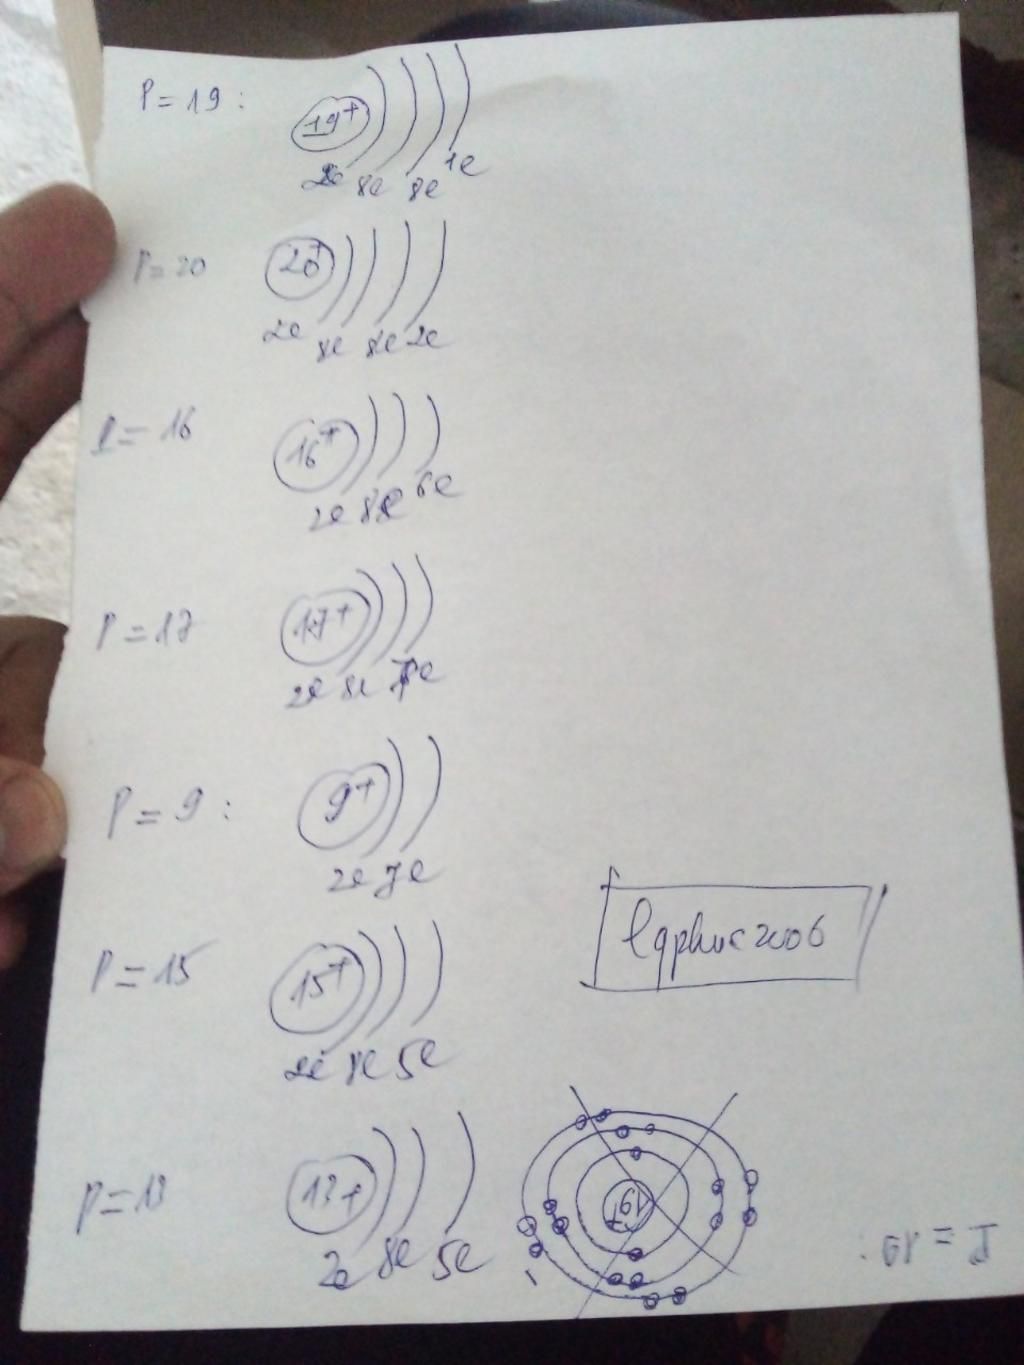 P = 19 :
19+
2e 8e 8e 1e
P = 20
20+
2e 8e 8e 2e
P = 16
16+
2e 8e 6e
P = 17
17+
2e 8e 7e
P = 9 :
9+
2e 7e
lqphuc2006
P = 15
15+
2e 8e 5e
P = 13
13+
2e 8e 5e
19+
P = 19 :